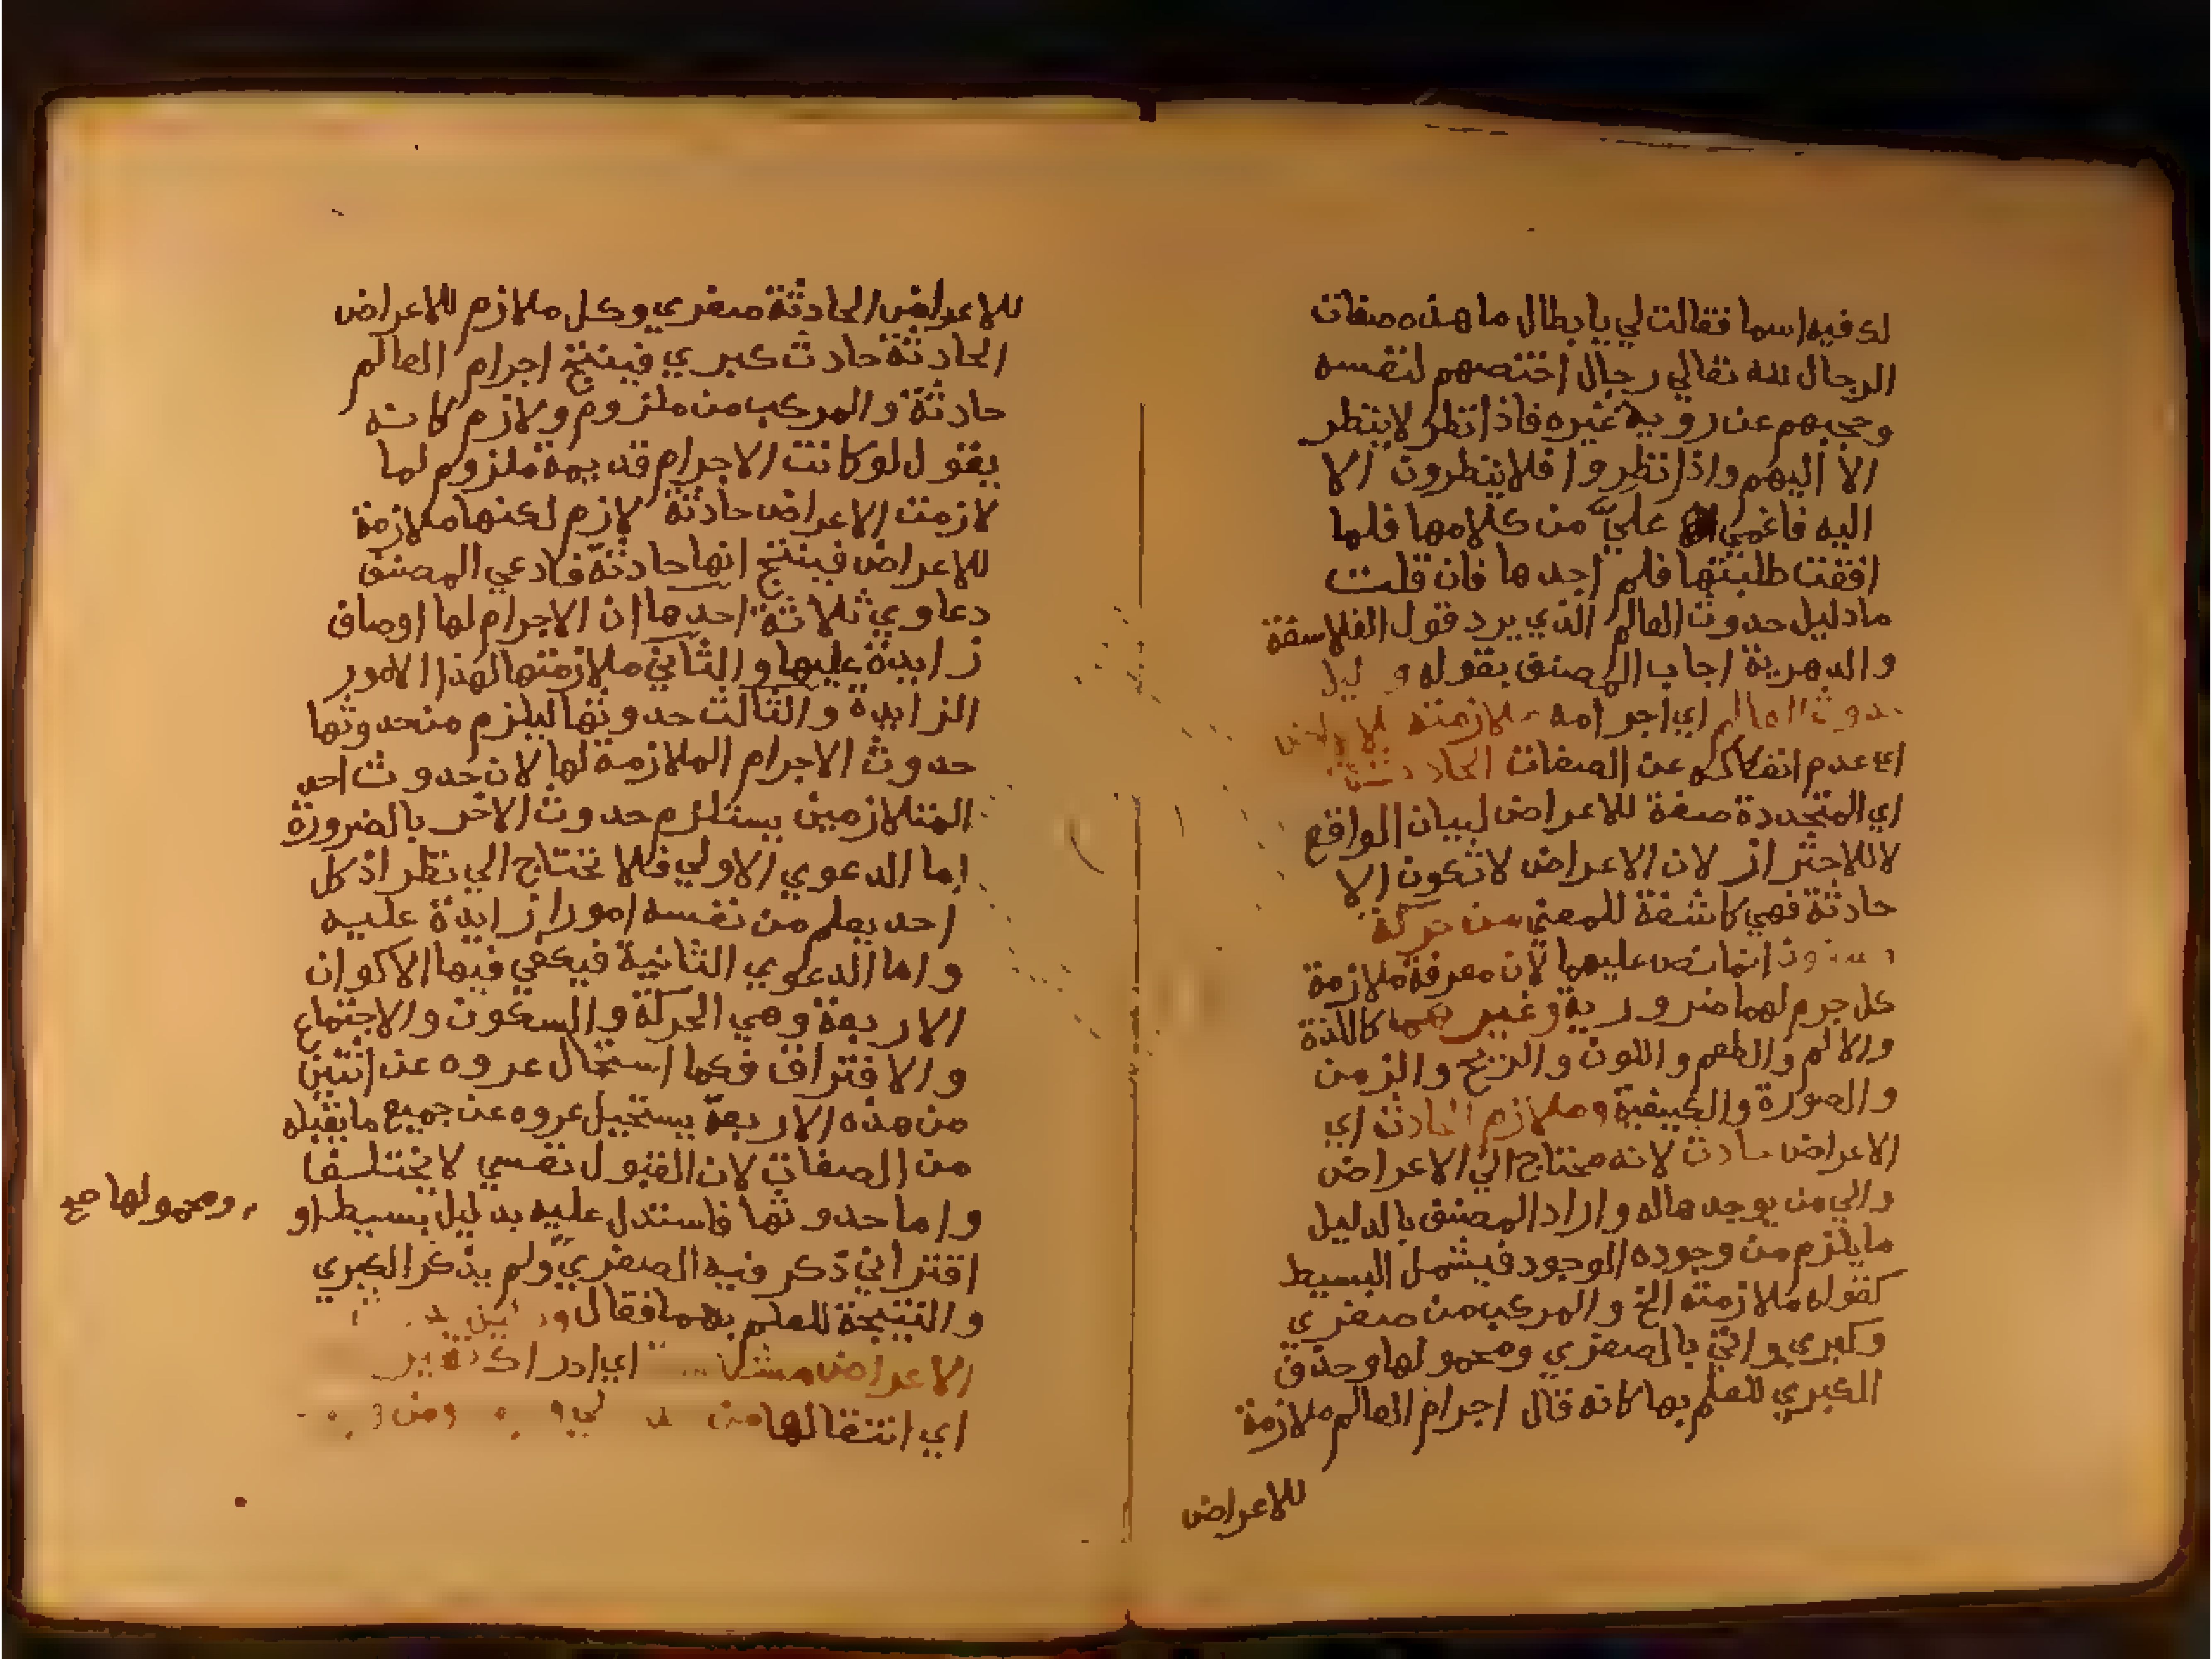 لك فيه اسما فقالت لي يا بطال ما هذه صفات
الرجال لله تعالي رجال اختصهم لنفسه
وحجبهم عن روية غيره فاذا نظر لا ينظر
الا اليهم واذا نظروا فلا ينظرون الا
اليه فاغمي علي من كلامها فلما
افقت طلبتها فلم اجدها فان قلت
ما دليل حدوث العالم الذي يرد قول الفلاسفة
والدهرية اجاب المصنف بقوله
حدوث العالم اي اجرامه ملازمته للاعراض
اي عدم انفكاكه عن الصفات الحادثة
اي المتجددة صفة للاعراض لبيان الواقع
لا للاحتراز لان الاعراض لا تكون الا
حادثة فهي كاشفة للمعني من حركة
انما نص عليهما لان معرفة ملازمة
كل جرم لهما ضرورية وغيرهما كاللذة
والالم والطعم واللون والريح والزمن
والصورة والكيفية وملازم الحادث اي
الاعراض حادث لانه محتاج الي الاعراض
والي من يوجدها له واراد المصنف بالدليل
ما يلزم من وجوده الوجود فيشمل البسيط
كقوله ملازمته الخ والمركب من صغري
وكبري واتي بالصغري ومحمولها وحذف
الكبري للعلم بها كانه قال اجرام العالم ملازمة
للاعراض
للاعراض الحادثة صغري وكل ملازم للاعراض
الحادثة حادث كبري فينتج اجرام العالم
حادثة والمركب من ملزوم ولازم كانه
يقول لو كانت الاجرام قديمة ملزوم لما
لازمت الاعراض حادثة لازم لكنها ملازمة
للاعراض فينتج انها حادثة فادعي المصنف
دعاوي ثلاثة احدها ان الاجرام لها اوصاف
زايدة عليها والثاني ملازمتها لهذا الامور
الزايدة والثالث حدوثها ليلزم من حدوثها
حدوث الاجرام الملازمة لها لان حدوث احد
المتلازمين يستلزم حدوث الاخر بالضرورة
اما الدعوي الاولي فلا تحتاج الي نظر اذ كل
احد يعلم من نفسه امورا زايدة عليه
واما الدعوي الثانية فيكفي فيها الاكوان
الاربعة وهي الحركة والسكون والاجتماع
والافتراق فكما استحال عروه عن اثنين
من هذه الاربعة يستحيل عروه عن جميع ما يقبله
من الصفات لان القبول نفسي لا يختلف
واما حدوثها فاستدل عليه بدليل بسيط او
اقتراني ذكر فيه الصغري ولم يذكر الكبري
ومحمولها صح
والنتيجة للعلم بهما فقال
الاعراض اي ادراك تغير
اي انتقالها من